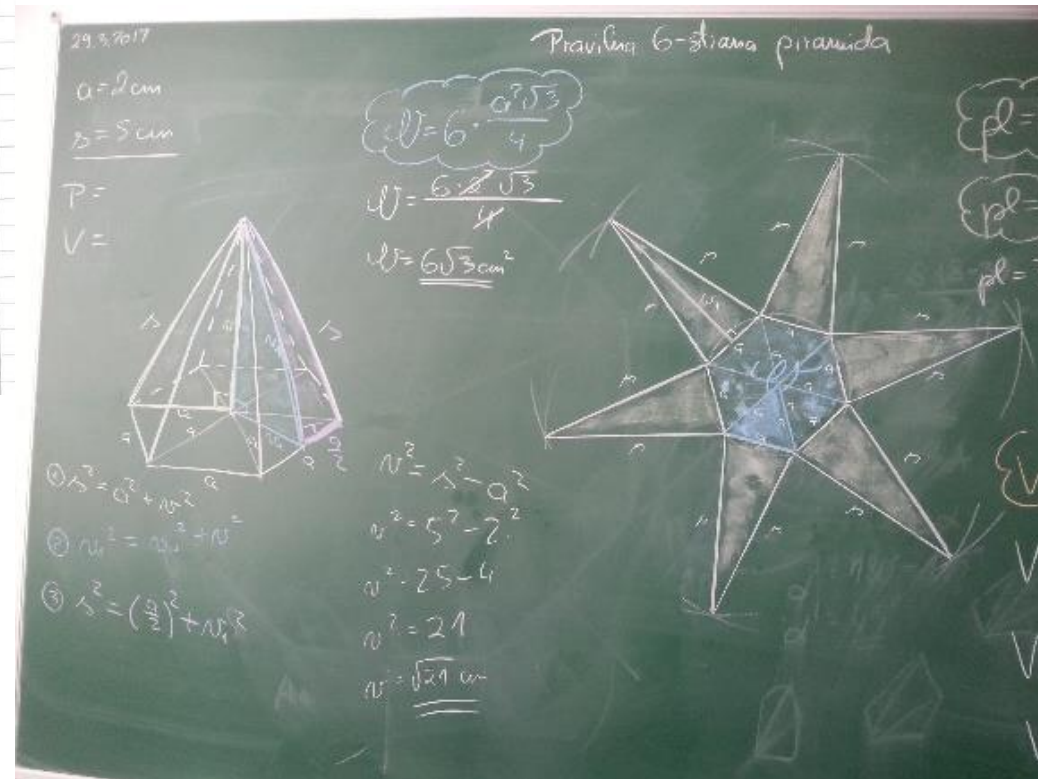 29.3.2017
Pravilna 6-strana piramida
a=2cm
s=5cm
P=
V=
O=6·a²√3/4
O=6·2²√3/4
O=6√3cm²
① s²=a²+v²
③ s²=(a/2)²+v₁²
v²=s²-a²
v²=5²-2²
v²=25-4
v²=21
v=√21 cm
pl=
pl=
pl=
V
V
V
V